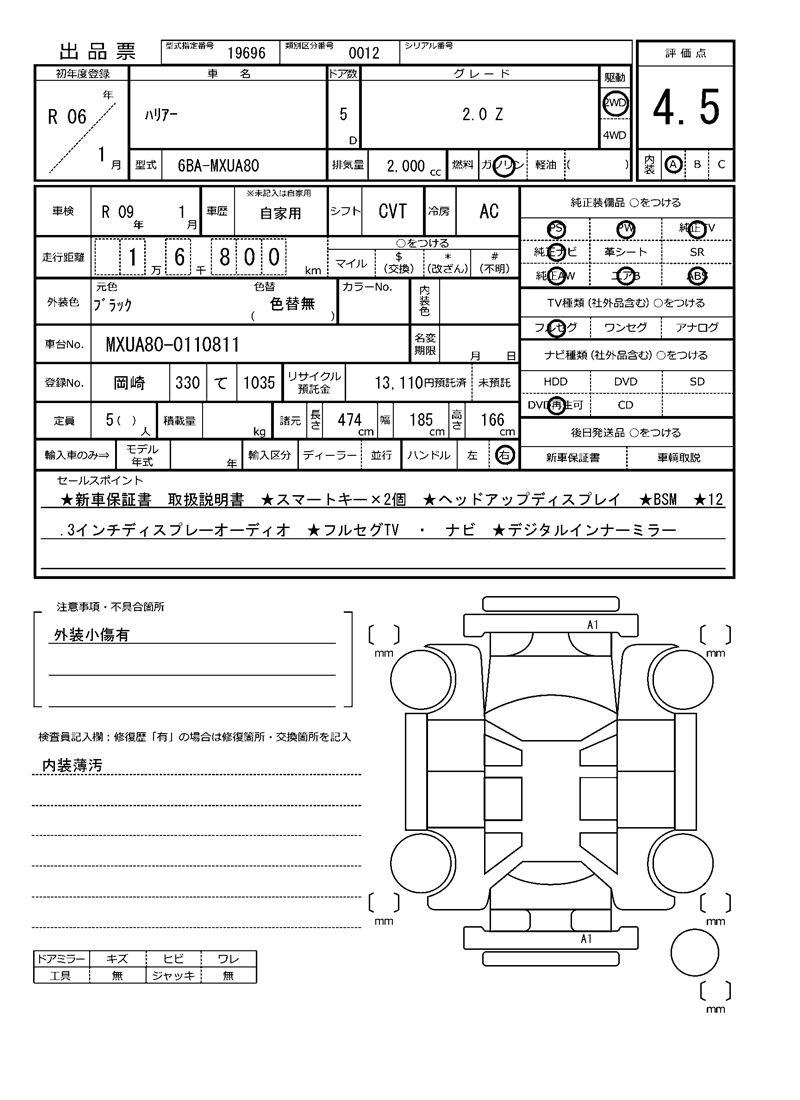 出品票 型式指定番号 19696 類別区分番号 0012 シリアル番号 評価点
初年度登録 車名 ドア数 グレード 駆動
R 06 年 1 月 ハリアー 5 D 2.0 Z 2WD 4WD 4.5
型式 6BA-MXUA80 排気量 2,000 cc 燃料 ガソリン 軽油 ( ) 内装 A B C
車検 R 09 年 1 月 車歴 ※未記入は自家用 自家用 シフト CVT 冷房 AC
走行距離 1 万 6 千 8 0 0 km ○をつける マイル $ (交換) * (改ざん) # (不明)
外装色 元色 ブラック 色替 色替無 ( ) カラーNo. 内装色
車台No. MXUA80-0110811 名変期限 月 日
登録No. 岡崎 330 て 1035 リサイクル預託金 13,110 円預託済 未預託
定員 5 ( ) 人 積載量 kg 諸元 長さ 474 cm 幅 185 cm 高さ 166 cm
輸入車のみ⇒ モデル年式 年 輸入区分 ディーラー 並行 ハンドル 左 右
純正装備品 ○をつける
PS PW 純正TV
純正ナビ 革シート SR
純正AW エアB ABS
TV種類 (社外品含む) ○をつける
フルセグ ワンセグ アナログ
ナビ種類 (社外品含む) ○をつける
HDD DVD SD
DVD再生可 CD
後日発送品 ○をつける
新車保証書 車輌取説
セールスポイント
★新車保証書 取扱説明書 ★スマートキー×2個 ★ヘッドアップディスプレイ ★BSM ★12
.3インチディスプレーオーディオ ★フルセグTV ・ ナビ ★デジタルインナーミラー
注意事項・不具合箇所
外装小傷有
検査員記入欄:修復歴「有」の場合は修復箇所・交換箇所を記入
内装薄汚
ドアミラー キズ ヒビ ワレ
工具 無 ジャッキ 無
A1
[ ] mm
[ ] mm
[ ] mm
[ ] mm
A1
[ ] mm